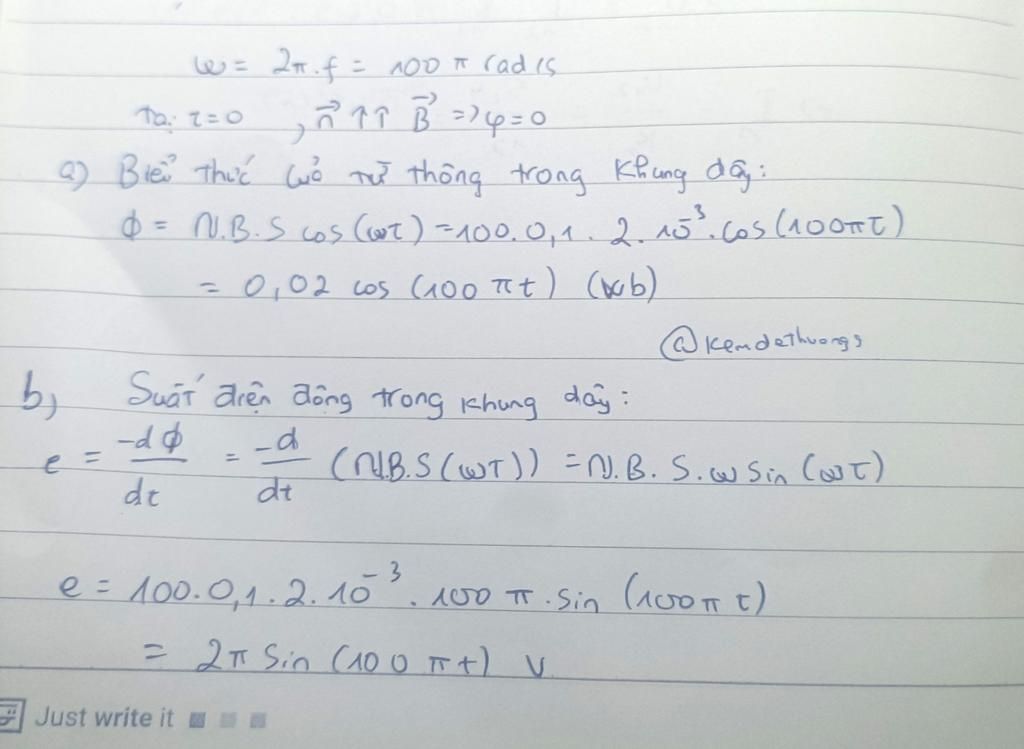 ω = 2π.f = 100 π rad/s
Tại t=0, n⃗ ↑↑ B⃗ => φ=0
a) Biểu thức của từ thông trong khung dây:
ϕ = N.B.S cos(ωt) = 100. 0,1. 2. 10⁻³. cos(100πt)
= 0,02 cos (100 πt) (Wb)
@kemdethuongs
b, Suất điện động trong khung dây:
e = -dϕ/dt = -d/dt (N.B.S(ωt)) = N.B. S. ω sin (ωt)
e = 100. 0,1. 2. 10⁻³. 100 π. sin (100π t)
= 2π sin (100 πt) V
Just write it